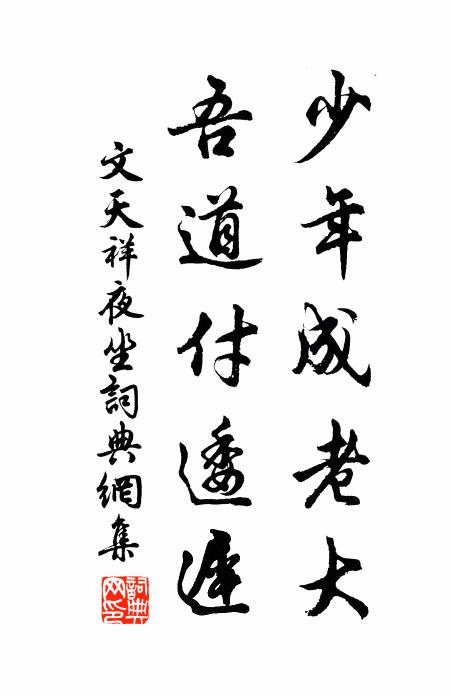 少年成老大
吾道付逶遲
文天祥夜坐詞典網集
詞典網印